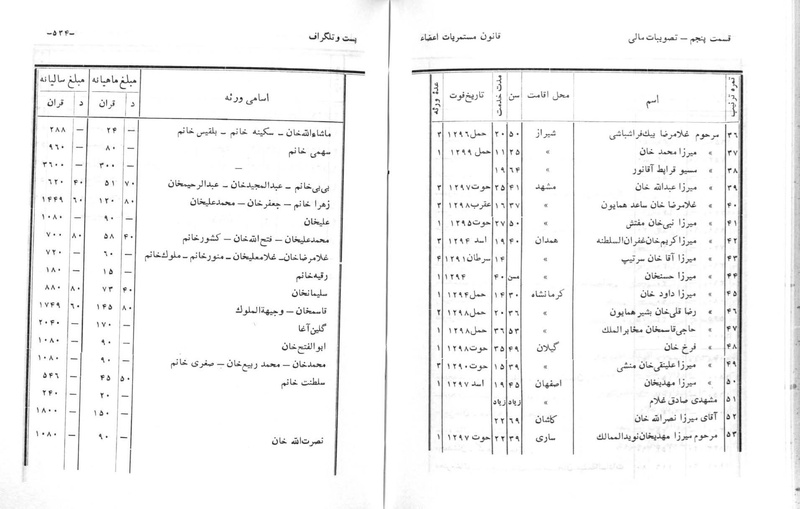 قسمت پنجم - تصویبات مالی
قانون مستمریات اعضاء
نمره ترتیب | اسم | محل اقامت | سن | مدت خدمت | تاریخ فوت | عدۀ ورثه
۳۶ مرحوم غلامرضا بیك فراشباشی شیراز ۵۰ ۲۰ حمل ۱۲۹۶ ۳
۳۷ » میرزا محمد خان » ۲۵ ۱۱ حمل ۱۲۹۹ ۱
۳۸ » مسیو قرابط آقانور » ۶۴ ۱۹
۳۹ » میرزا عبدالله خان مشهد ۴۱ ۲۵ حوت ۱۲۹۷ ۳
۴۰ » غلامرضا خان ساعد همایون » ۳۷ ۱۶ عقرب ۱۲۹۸ ۳
۴۱ » میرزا نبی خان مفتش » ۵۰ ۲۷ حوت ۱۲۹۵ ۱
۴۲ » میرزا کریم خان غفران السلطنه همدان ۴۰ ۱۹ اسد ۱۲۹۴ ۳
۴۳ » میرزا آقا خان سرتیپ » ۱۴ سرطان ۱۲۹۱ ۴
۴۴ » میرزا حسنخان » مسن ۴۰ ۱۲۹۴ ۱
۴۵ » میرزا داود خان کرمانشاه ۳۰ ۱۴ حمل ۱۲۹۴ ۱
۴۶ » رضا قلی خان بشیر همایون » ۳۶ ۲۰ حمل ۱۲۹۸ ۲
۴۷ » حاجی قاسمخان مخابر الملك » ۵۳ ۳۶ حمل ۱۲۹۸ ۱
۴۸ » فرخ خان گیلان ۴۹ ۳۵ حوت ۱۲۹۸ ۱
۴۹ » میرزا علینقی خان منشی » ۳۹ ۱۵ حوت ۱۲۹۰ ۳
۵۰ » میرزا مهدیخان اصفهان ۴۵ ۱۹ اسد ۱۲۹۷ ۱
۵۱ » مشهدی صادق غلام » زیاد زیاد
۵۲ آقای میرزا نصرالله خان کاشان ۶۹ ۲۲
۵۳ مرحوم میرزا مهدیخان نوید الممالك ساری ۳۹ ۲۲ حوت ۱۲۹۷ ۱
پست و تلگراف
-۵۳۴-
اسامی ورثه | مبلغ ماهیانه | مبلغ سالیانه
قران | د | قران | د
ماشاءالله خان - سکینه خانم - بلقیس خانم ۲۴ — ۲۸۸ —
سهمی خانم ۸۰ — ۹۶۰ —
— ۳۰۰ — ۳۶۰۰ —
بی بی خانم - عبدالمجید خان - عبدالرحیمخان ۵۱ ۷۰ ۶۲۰ ۴۰
زهرا خانم - جعفر خان - محمد علیخان ۱۲۰ ۸۰ ۱۴۴۹ ۶۰
علیخان ۹۰ — ۱۰۸۰ —
محمد علیخان - فتح الله خان - کشور خانم ۵۸ ۴۰ ۷۰۰ ۸۰
غلامرضا خان - غلامعلیخان - منور خانم - ملوك خانم ۶۰ — ۷۲۰ —
رقیه خانم ۱۵ — ۱۸۰ —
سلیمانخان ۷۳ ۴۰ ۸۸۰ ۸۰
قاسمخان - وجیهة الملوك ۱۴۵ ۸۰ ۱۷۴۹ ۶۰
گلین آغا ۱۷۰ — ۲۰۴۰ —
ابوالفتح خان ۹۰ — ۱۰۸۰ —
محمد خان - محمد ربیع خان - صغری خانم ۹۰ — ۱۰۸۰ —
سلطنت خانم ۴۵ ۵۰ ۵۴۶ —
۲۰ — ۲۴۰ —
۱۵۰ — ۱۸۰۰ —
نصرت الله خان ۹۰ — ۱۰۸۰ —